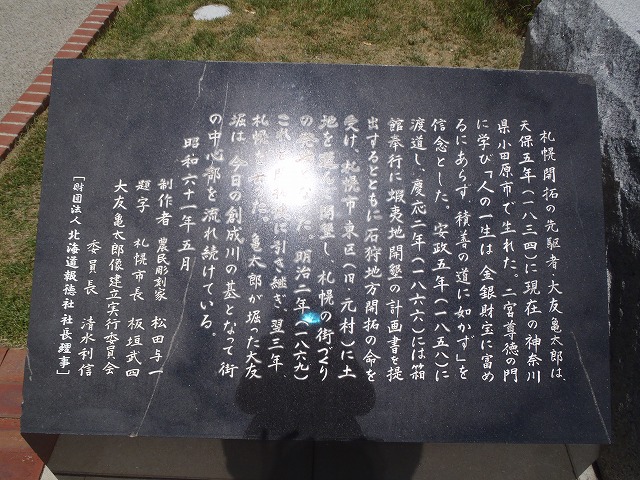 札幌開拓の先駆者・大友亀太郎は、
天保五年(一八三四)に現在の神奈川
県小田原市で生れた。二宮尊徳の門
に学び「人の一生は、金銀財宝に富め
るにあらず、積善の道に如かず」を
信念とした。安政五年(一八五八)に
渡道し、慶応二年(一八六六)には箱
館奉行に蝦夷地開墾の計画書を提
出するとともに石狩地方開拓の命を
受け、札幌市東区(旧 元村)に土
地を 開墾し、札幌の街づくり
の た。明治二年(一八六九)
これ に引き継ぎ、翌三年、
札幌を 亀太郎が掘った大友
堀は、今日の創成川の基となって街
の中心部を流れ続けている。
昭和六十一年五月
制作者 農民彫刻家 松田与一
題字 札幌市長 板垣武四
大友亀太郎像建立実行委員会
委員長 清水利信
[財団法人 北海道報徳社 社長理事]